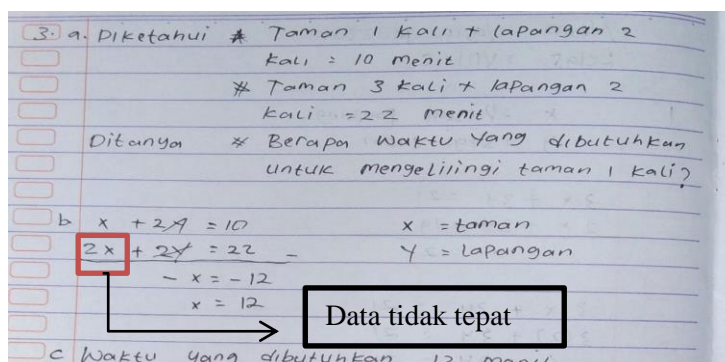 3. a. Diketahui * Taman 1 kali + lapangan 2
kali = 10 menit
* Taman 3 kali + lapangan 2
kali = 22 menit
Ditanya * Berapa waktu yang dibutuhkan
untuk mengelilingi taman 1 kali?
b x + 2y = 10 x = taman
2x + 2y = 22 - y = lapangan
- x = -12
x = 12
Data tidak tepat
c Waktu yang dibutuhkan 12 menit